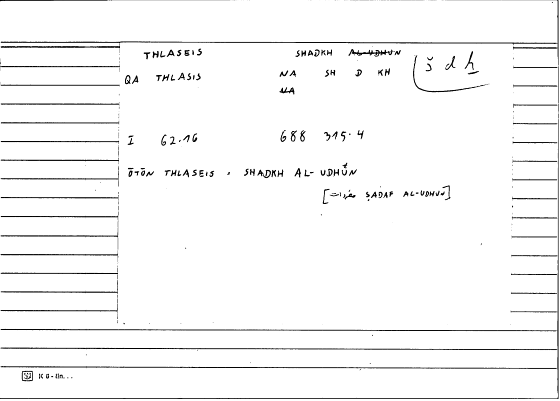 THLASEIS SHADKH AL-UDHUN š d ḫ
QA THLASIS NA SH D KH
NA
I 62.16 688 315.4
ŌTŌN THLASEIS : SHADKH AL-UDHŪN
[مفردات ṢADAF AL-UDHUN]